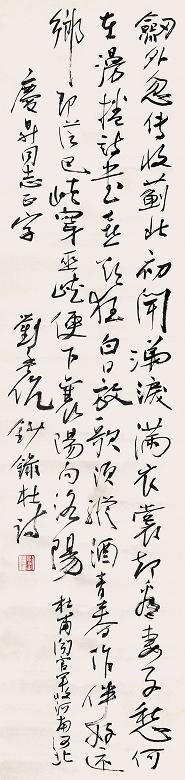 劔外忽傳收薊北初聞涕淚滿衣裳却看妻子愁何
在漫捲詩書喜欲狂白日放歌須縱酒青春作伴好還
鄉即從巴峽穿巫峽便下襄陽向洛陽 杜甫聞官軍收河南河北
慶昇同志正字 劉孟伉鈔錄杜詩